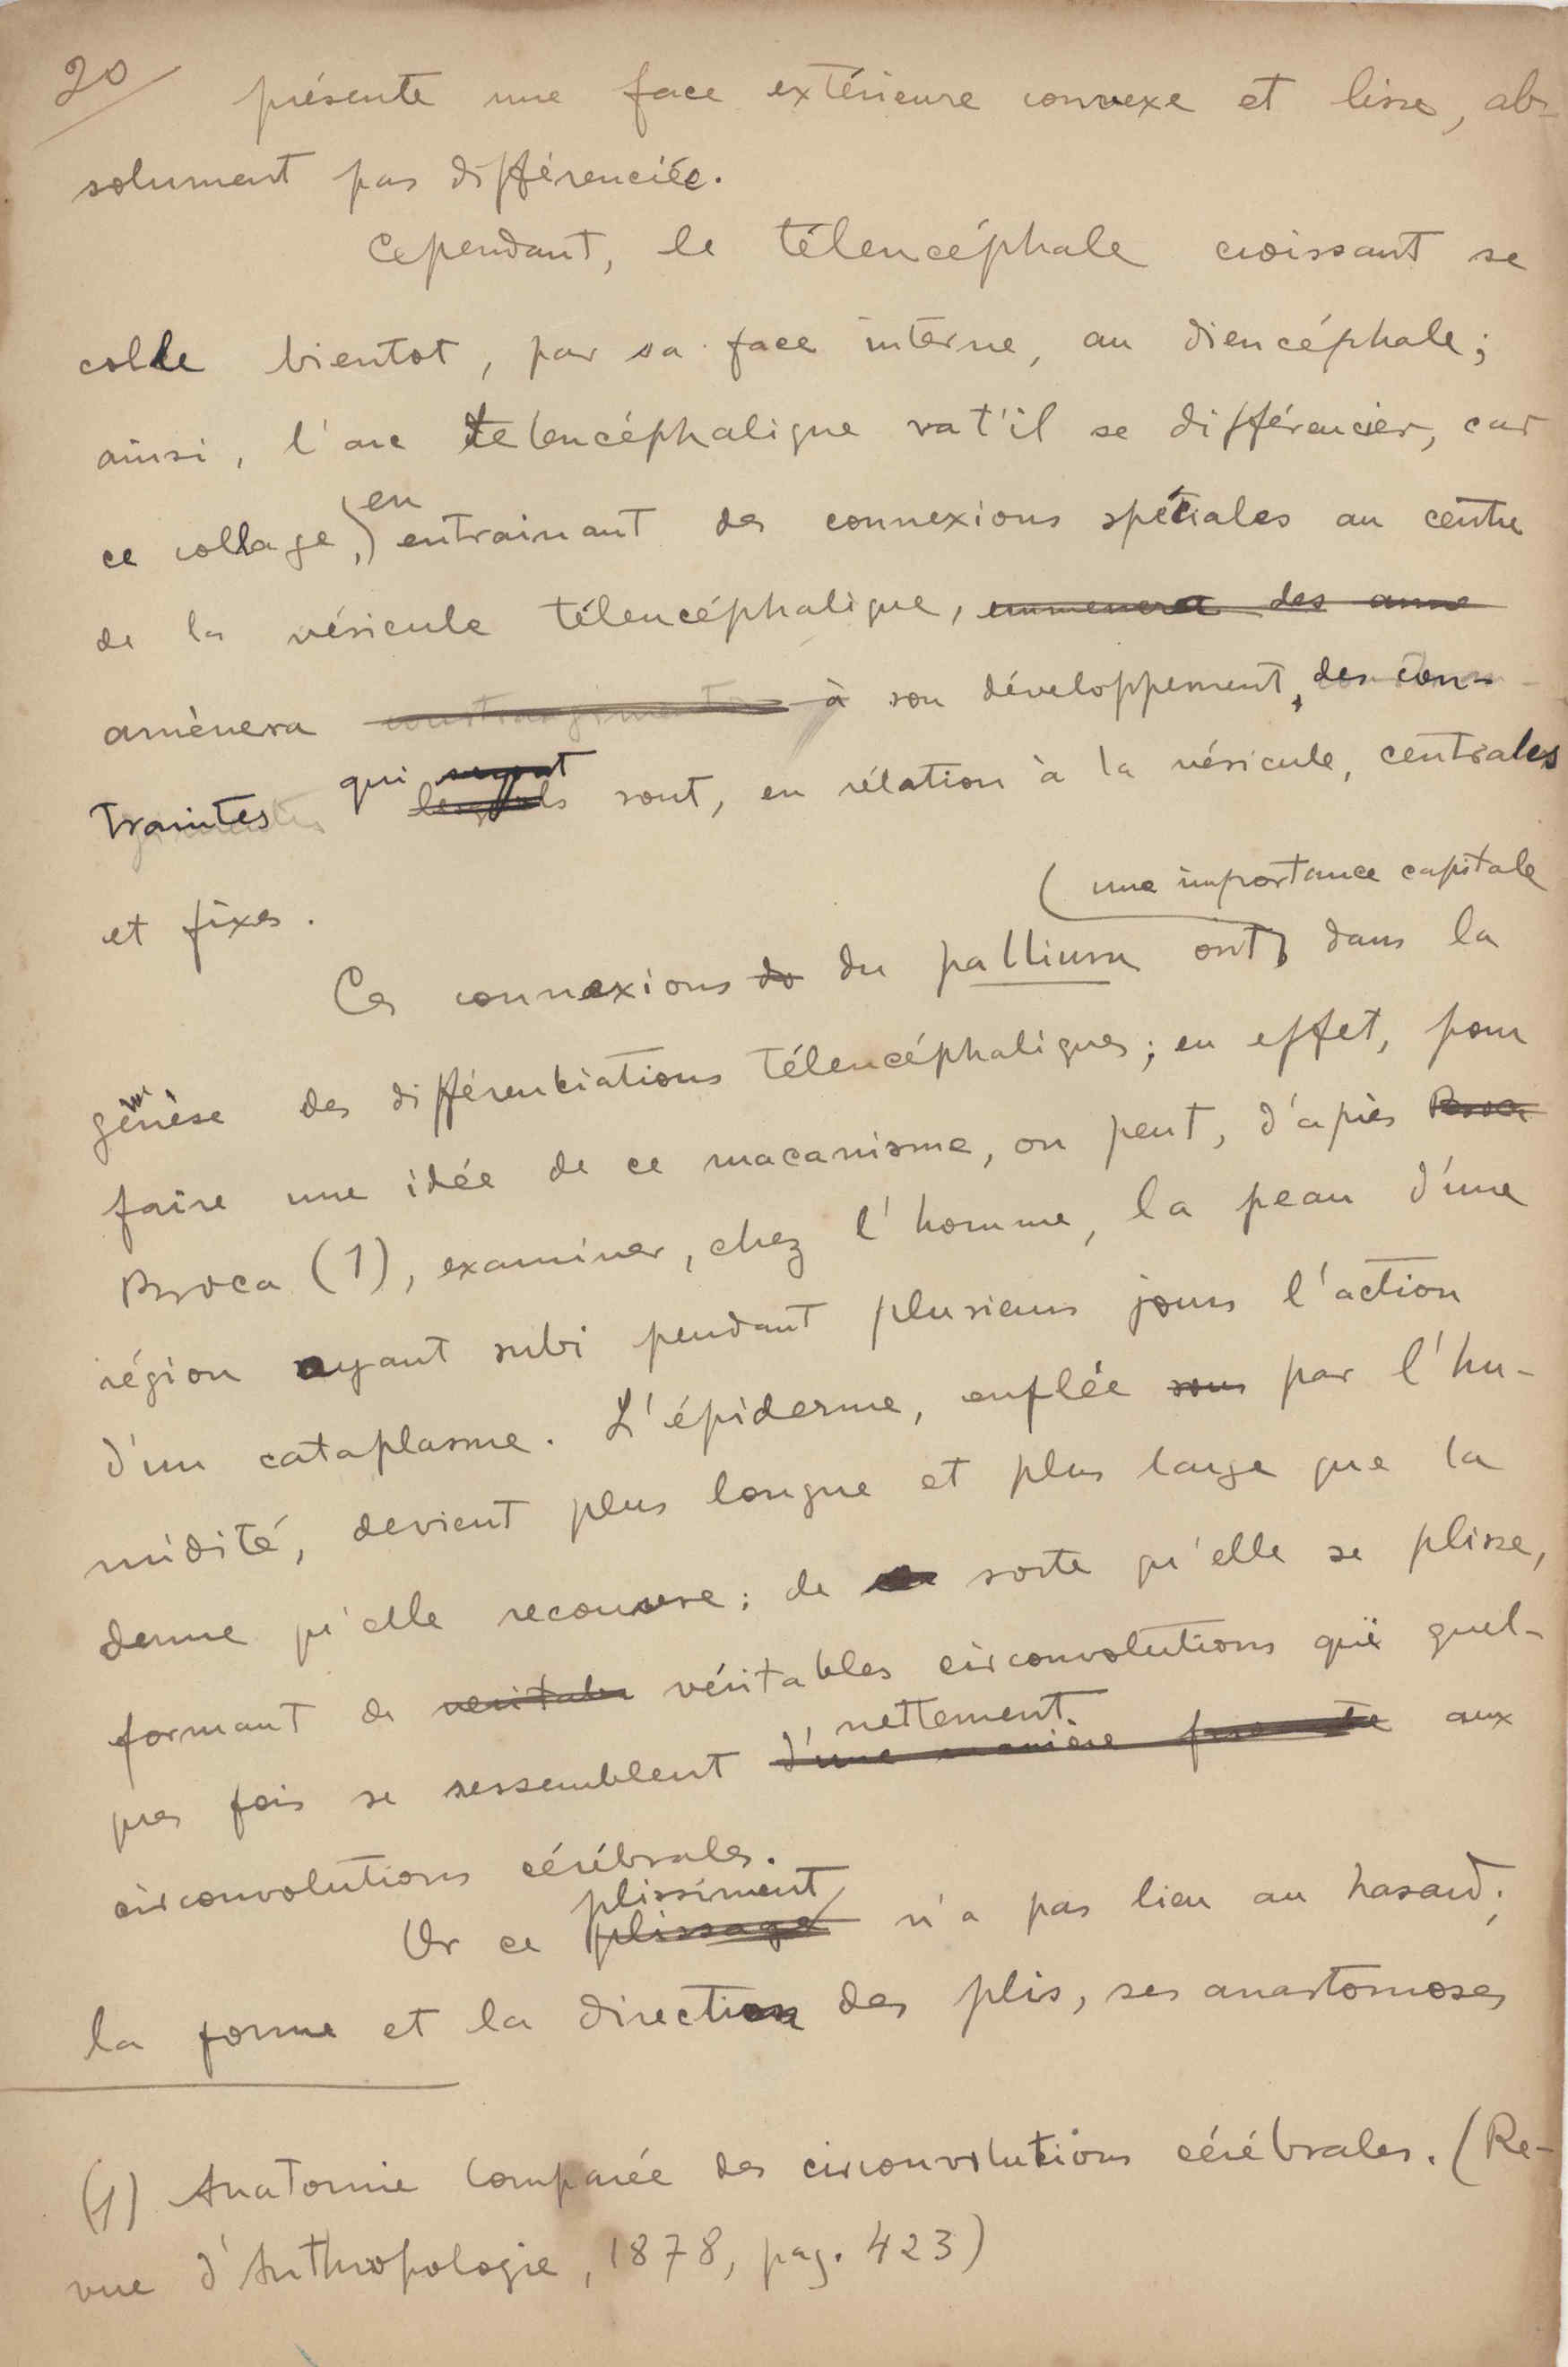 20
présente une face extérieure convexe et lisse, ab-
solument pas différenciée.
Cependant, le télencéphale croissant se
colle bientot, par sa face interne, au diencéphale;
ainsi, l'arc telencéphalique vat'il se différencier, car
ce collage, en entrainant des connexions spéciales au centre
de la vésicule télencéphalique, emmenera des anne
amènera à son développement, des con-
traintes qui seront lesquels sont, en rélation à la vésicule, centrales
et fixes.
(une importance capitale
Ces connexions do du pallium ont, dans la
génèse des différentiations télencéphaliques; en effet, pour
faire une idée de ce macanisme, on peut, d'après Broca
Broca (1), examiner, chez l'homme, la peau d'une
région ayant subi pendant plusieurs jours l'action
d'un cataplasme. L'épiderme, enflée sous par l'hu-
midité, devient plus longue et plus large que la
derme qu'elle recouvre: de sorte qu'elle se plisse,
formant de veritables véritables circonvolutions qui quel-
ques fois se ressemblent d'une manière nettement aux
circonvolutions cérébrales.
Or ce plissage plissiment n'a pas lieu au hasard;
la forme et la direction des plis, ses anastomoses
(1) Anatomie Comparée des circonvolutions cérébrales. (Re-
vue d'Anthropologie, 1878, pag. 423)